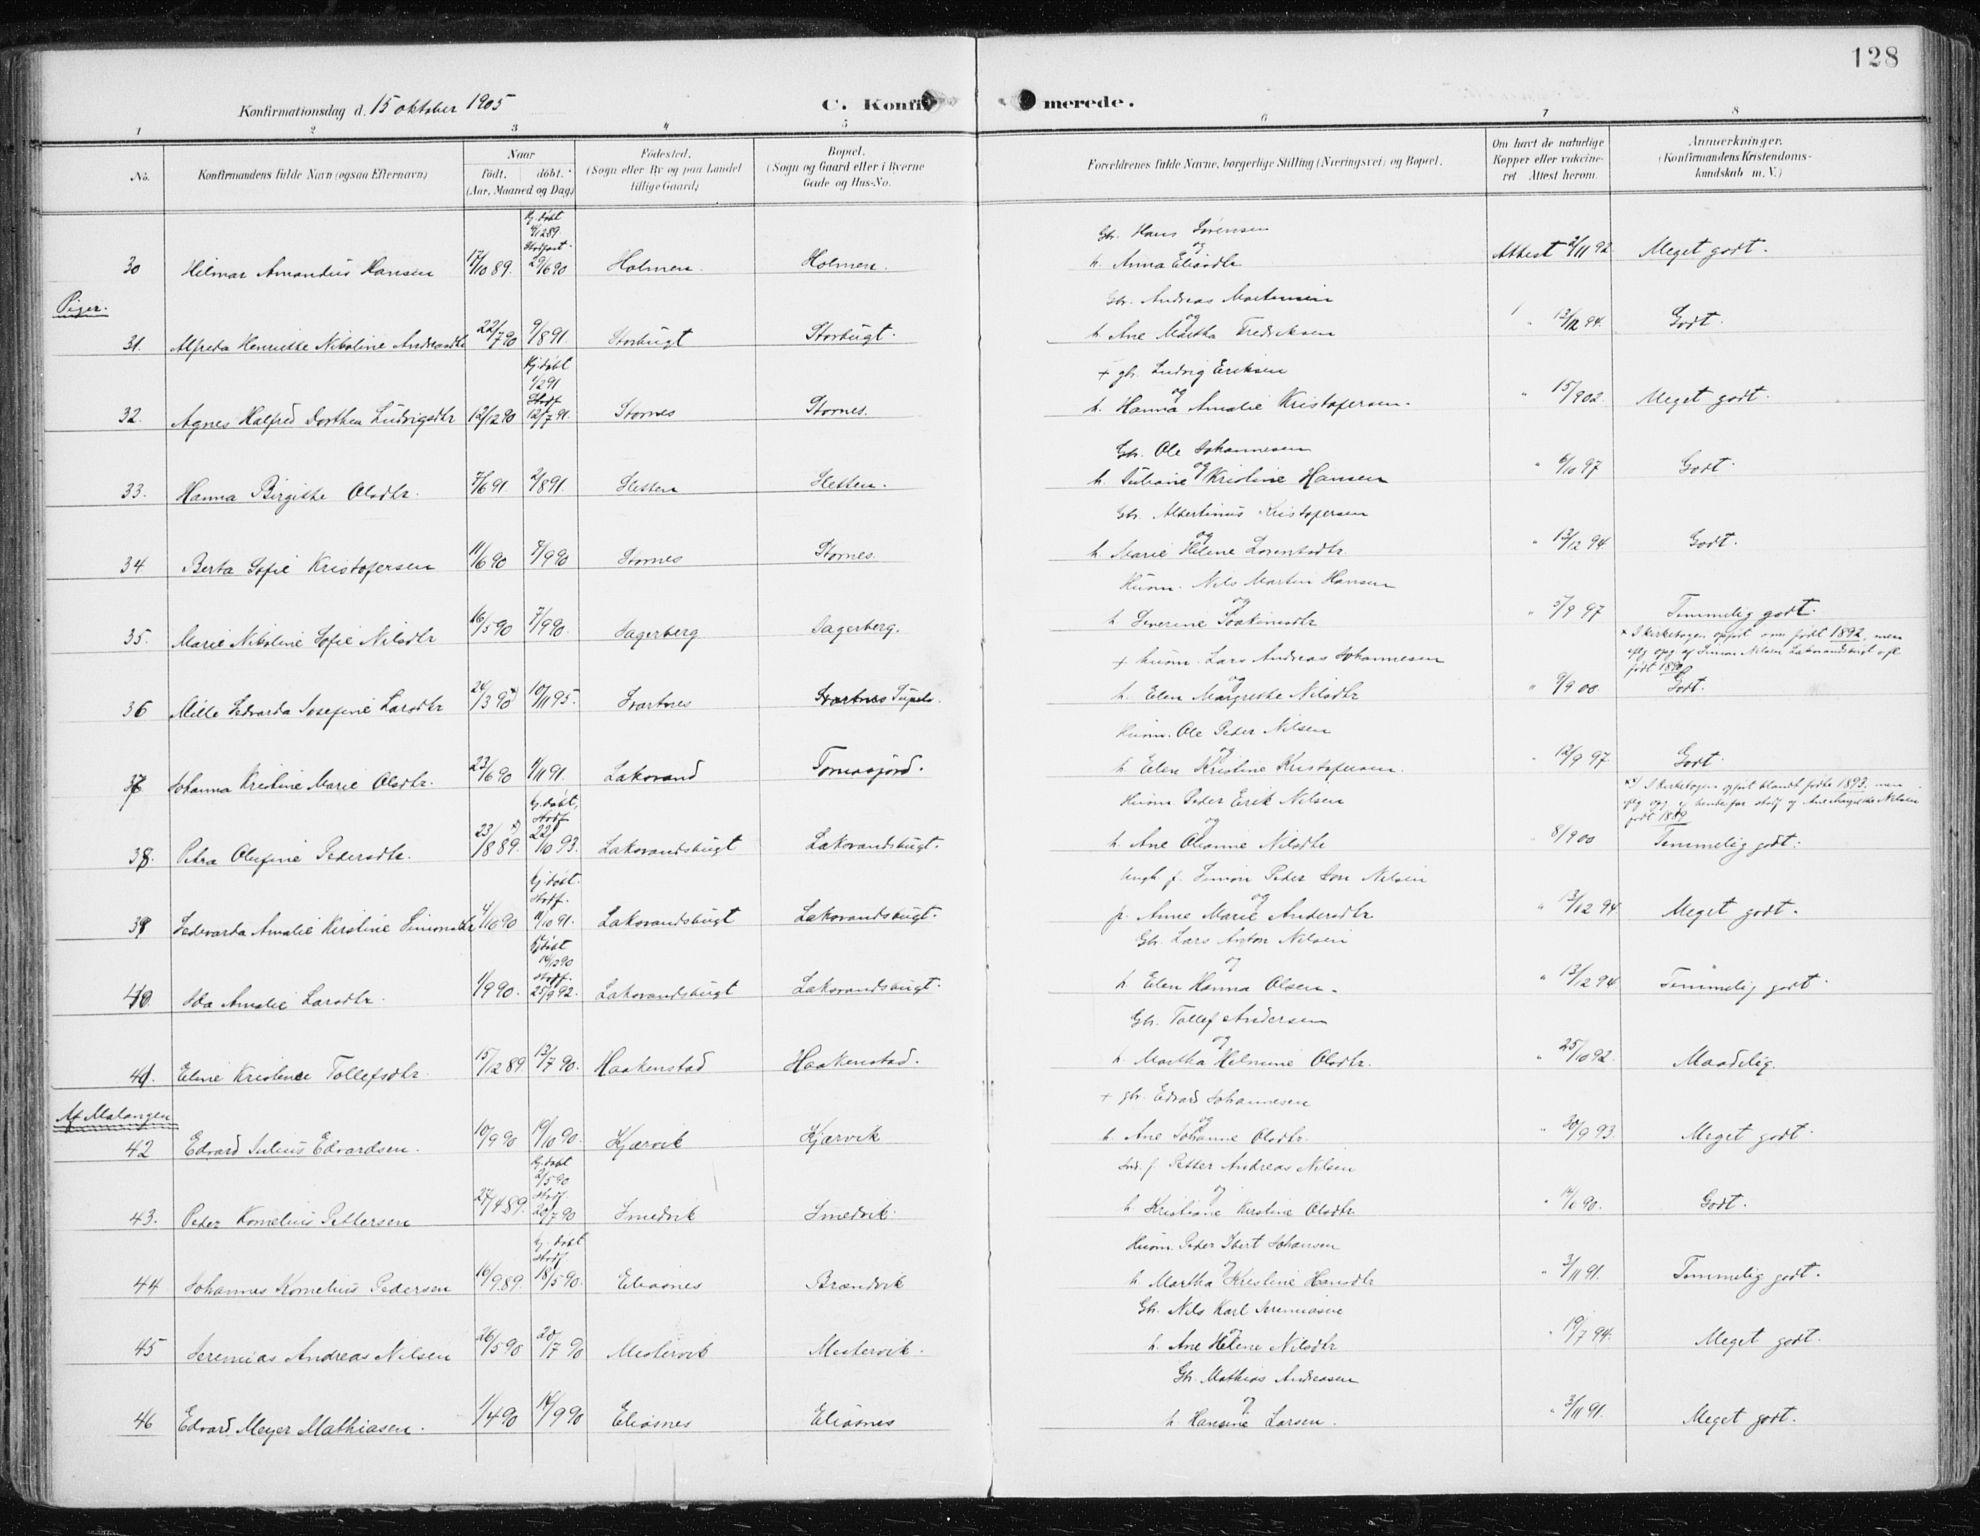 128
Konfirmationsdag d. 15 oktober 1905
C. Konfir merede.
1 2 3 4 5 6 7 8
No. Konfirmandens fulde Navn (ogsaa Efternavn)
Naar født. døbt. (Aar, Maaned og Dag)
Fødested. (Sogn eller By og paa Landet tillige Gaard)
Bopæl. (Sogn og Gaard eller i Byerne Gade og Hus-No.
Forældrenes fulde Navne, borgerlige Stilling (Næringsvei) og Bopæl.
Om havt de naturlige Kopper eller vakcineret Attest herom.
Anmærkninger. (Konfirmandens Kristendomskundskab m. V.)
30 Hilmar Amandus Hansen 17/10 89. Hj. døbt 28/6 90 Holmen. Holmen. Gbr. Hans Sørensen og h. Anna Eliasdtr Attest 2/11 92 Meget godt.
Piger.
31. Alfreda Henriette Nikoline Andreasdtr 22/7 90 9/8 91. Storbugt Storbugt. Gbr. Andreas Martinsen og h. Ane Martha Fredriksen " 13/12 94. Godt.
32. Agnes Halfred Dorthea Ludvigsdtr 12/12 90 Hj. døbt 1/2 91 Stadf. 12/7 91. Stornes Stornes. + gbr. Ludvig Eriksen og h. Hanna Amalie Kristofersen. " 15/9 02. Meget godt.
33. Hanna Birgitte Olsdtr. 7/6 91. 2/8 91. Sletten Sletten. Gbr. Ole Johannesen og h. Juliane Kristine Hansen " 6/10 97 Godt.
34 Berta Sofie Kristofersen 11/6 90 7/9 90 Stornes Stornes. Gbr. Albertinius Kristofersen og h. Marie Helene Lorentsdtr. " 13/12 94 Godt.
35. Marie Nikoline Sofie Nilsdtr 16/5 90 7/9 90. Sagerberg Sagerberg. Husm. Nils Martin Hansen og h. Severine Joakimsdtr " 5/9 97 Temmelig godt.
* I kirkebogen opført som født 1892, men
iflg opg af Simon Nilsen Lakvandsbugt født 1890
36 Mille Hedvarda Josefine Larsdtr 24/3 90*) 10/11 95. Svartnes Svartnes + husm. Lars Andreas Johannesen og h. Elen Margrethe Nilsdtr " 9/9 00 Godt.
37 Johanna Kristine Marie Olsdtr. 23/6 90 1/11 91. Lakvand Tomasjord. Husm. Ole Peder Nilsen og h. Elen Kristine Kristofersen. " 12/9 97 Godt.
*) I kirkebogen opført blandt fødte 1893, men
født 1889
38. Petra Olufine Pedersdtr. 23/8 89 *) Hj. døbt, Stadf. 22/10 93. Lakvandsbugt Lakvandsbugt. Husm Peder Erik Nilsen og h. Ane Oleanne Nilsdtr " 8/9 00 Temmelig godt.
39 Hedevarda Amalie Kirstine Simonsdtr 4/10 90 Hj. døbt. Stadf. 11/10 91. Lakvandsbugt Lakvandsbugt. Ungk f. Simon Peder Nilsen og p. Anne Marie Andersdtr " 13/12 94 Meget godt.
40. Ida Amalie Larsdtr. 1/9 90. Hj. døbt 14/12 90 Stadf. 25/9 92. Lakvandsbugt Lakvandsbugt. Gbr. Lars Anton Nilsen og h. Elen Hanna Olsen. " 13/12 94 Temmelig godt.
41. Eline Kristine Tollefsdtr. 15/12 89 13/7 90. Haakenstad Haakenstad. Gbr. Tollef Andersen og h. Martha Helmine Olsdtr. " 25/10 92. Maadelig.
Af Malangen
42 Edvard Julius Edvardsen. 10/9 90 19/10 90. Kjærvik Kjærvik + gbr. Edvard Johannesen og h. Ane Johanne Olsdtr. " 30/9 93. Meget godt.
43. Peder Kornelius Pettersen 27/4 89. Hj. døbt 2/5 90 Stadf. 20/7 90 Smedvik Smedvik. Petter Andreas Nilsen og h. Kristiane Kirstine Olsdtr Godt.
44 Johannes Kornelius Pedersen 16/9 89. Hj. døbt Stadf 18/5 90. Eliasnes Brændvik Husm. Peder Ibert Johansen og h. Martha Kristine Hansdtr " 3/11 91. Temmelig godt.
45 Jeremias Andreas Nilsen 26/5 90 20/7 90 Mestervik Mestervik. Gbr. Nils Karl Jeremiasen og h. Ane Helene Nilsdtr " 19/7 94. Meget godt.
46 Edvard Meyer Mathiasen. 1/4 90 14/9 90 Eliasnes Eliasnes Gbr. Mathias Andreasen og h. Hansine Larsen. " 3/11 91. Meget godt.